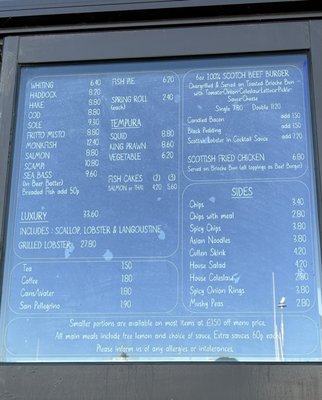 WHITING 6.40
HADDOCK 8.20
HAKE 8.80
COD 8.80
SOLE 9.30
FRITTO MISTO 8.80
MONKFISH 12.40
SALMON 8.80
SCAMPI 10.80
SEA BASS 9.60
(in Beer Batter)
Breaded Fish add 50p
LUXURY 33.60
INCLUDES : SCALLOP, LOBSTER & LANGOUSTINE
GRILLED LOBSTER 27.80
Tea 1.50
Coffee 1.80
Cans/Water 1.80
San Pellegrino 1.90
FISH PIE 6.20
SPRING ROLL 2.40
(each)
TEMPURA
SQUID 8.80
KING PRAWN 8.60
VEGETABLE 6.20
FISH CAKES (2) (3)
SALMON or THAI 4.20 5.60
6oz 100% SCOTCH BEEF BURGER
Chargrilled & Served on Toasted Brioche Bun
with Tomato•Onion•Coleslaw•Lettuce•Pickle•
Sauce•Cheese
Single 7.80 Double 11.20
Candied Bacon add 1.50
Black Pudding add 1.50
Scottish Lobster in Cocktail Sauce add 7.20
SCOTTISH FRIED CHICKEN 6.80
Served on Brioche Bun (all toppings as Beef Burger)
SIDES
Chips 3.40
Chips with meal 2.80
Spicy Chips 3.80
Asian Noodles 3.80
Cullen Skink 4.20
House Salad 4.20
House Coleslaw 2.80
Spicy Onion Rings 3.80
Mushy Peas 2.80
Smaller portions are available on most items at £1.50 off menu price.
All main meals include free lemon and choice of sauce. Extra sauces 60p each
Please inform us of any allergies or intolerances.